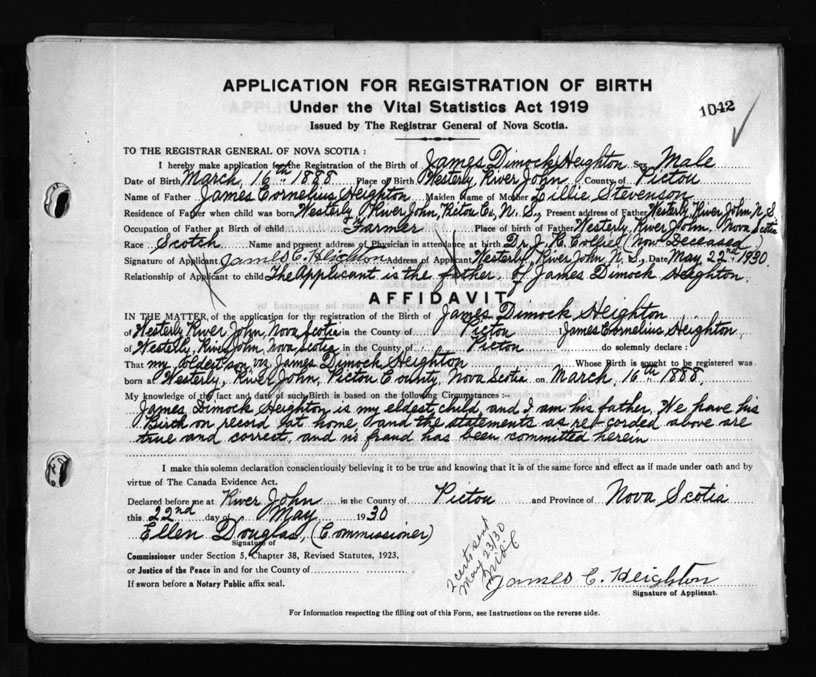 APPLICATION FOR REGISTRATION OF BIRTH
Under the Vital Statistics Act 1919
1042
Issued by The Registrar General of Nova Scotia.
TO THE REGISTRAR GENERAL OF NOVA SCOTIA :
I hereby make application for the Registration of the Birth of James Dimock Heighton Sex Male
Date of Birth March, 16th 1888 Place of Birth Westerly River John County of Pictou
Name of Father James Cornelius Heighton Maiden Name of Mother Lillie Stevenson
Residence of Father when child was born Westerly River John, Pictou Co, N. S., Present address of Father Westerly, River John, N. S
Occupation of Father at Birth of child Farmer Place of birth of Father Westerly, River John, Nova Scotia
Race Scotch Name and present address of Physician in attendance at birth Dr. J. K. (Now Deceased)
Signature of Applicant James C. Heighton Address of Applicant Westerly, River John, N. S., Date May, 22nd 1930
Relationship of Applicant to child The Applicant is the father, of James Dimock Heighton.
AFFIDAVIT
IN THE MATTER, of the application for the registration of the Birth of James Dimock Heighton
of Westerly River John, Nova Scotia in the County of Pictou James Cornelius Heighton
of Westerly, River John, Nova Scotia in the County of Pictou do solemnly declare :
That my oldest son, James Dimock Heighton Whose Birth is sought to be registered was
born at Westerly, River John, Pictou County, Nova Scotia on March, 16th 1888,
My knowledge of the fact and date of such Birth is based on the following Circumstances :
James Dimock Heighton is my eldest child, and I am his father, We have his
Birth on record at home, and the statements as recorded above are
true and correct, and no fraud has been committed herein
I make this solemn declaration conscientiously believing it to be true and knowing that it is of the same force and effect as if made under oath and by
virtue of The Canada Evidence Act.
Declared before me at River John in the County of Pictou and Province of Nova Scotia
this 22nd day of May 1930
Ellen Douglas, (Commissioner)
Signature of
Commissioner under Section 5, Chapter 38, Revised Statutes, 1923,
or Justice of the Peace in and for the County of
If sworn before a Notary Public affix seal.
2 certs sent
May 23/30
James C. Heighton
Signature of Applicant.
For Information respecting the filling out of this Form, see Instructions on the reverse side.